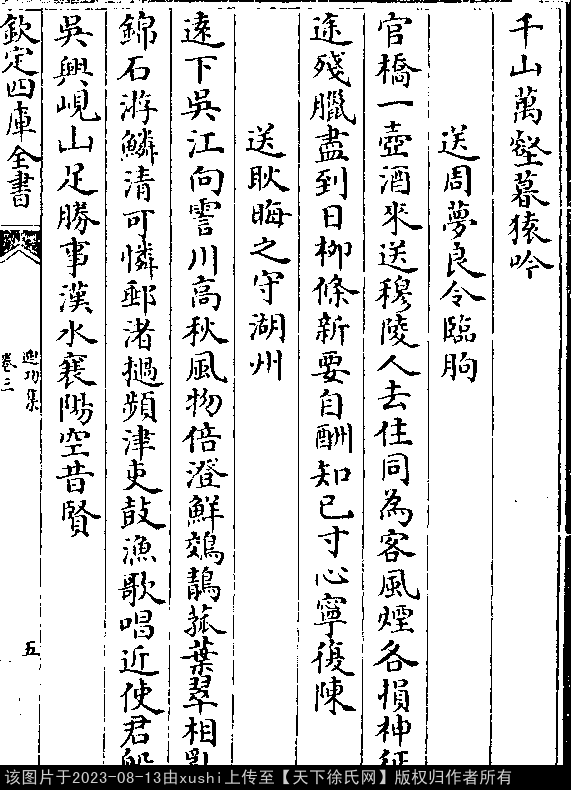 千山萬壑暮猿吟
送周夢良令臨朐
官橋一壺酒來送穆陵人去住同為客風煙各損神征
途殘臘盡到日柳條新要自酬知己寸心寧復陳
送耿晦之守湖州
遠下吳江向霅川高秋風物倍澄鮮鵁鶄菰葉翠相亂
錦石游鱗清可憐郵渚撾頻津吏鼓漁歌唱近使君船
吳興峴山足勝事漢水襄陽空昔賢
欽定四庫全書
迪功集
卷三
五
该图片于2023-08-13由xushi上传至【天下徐氏网】版权归作者所有